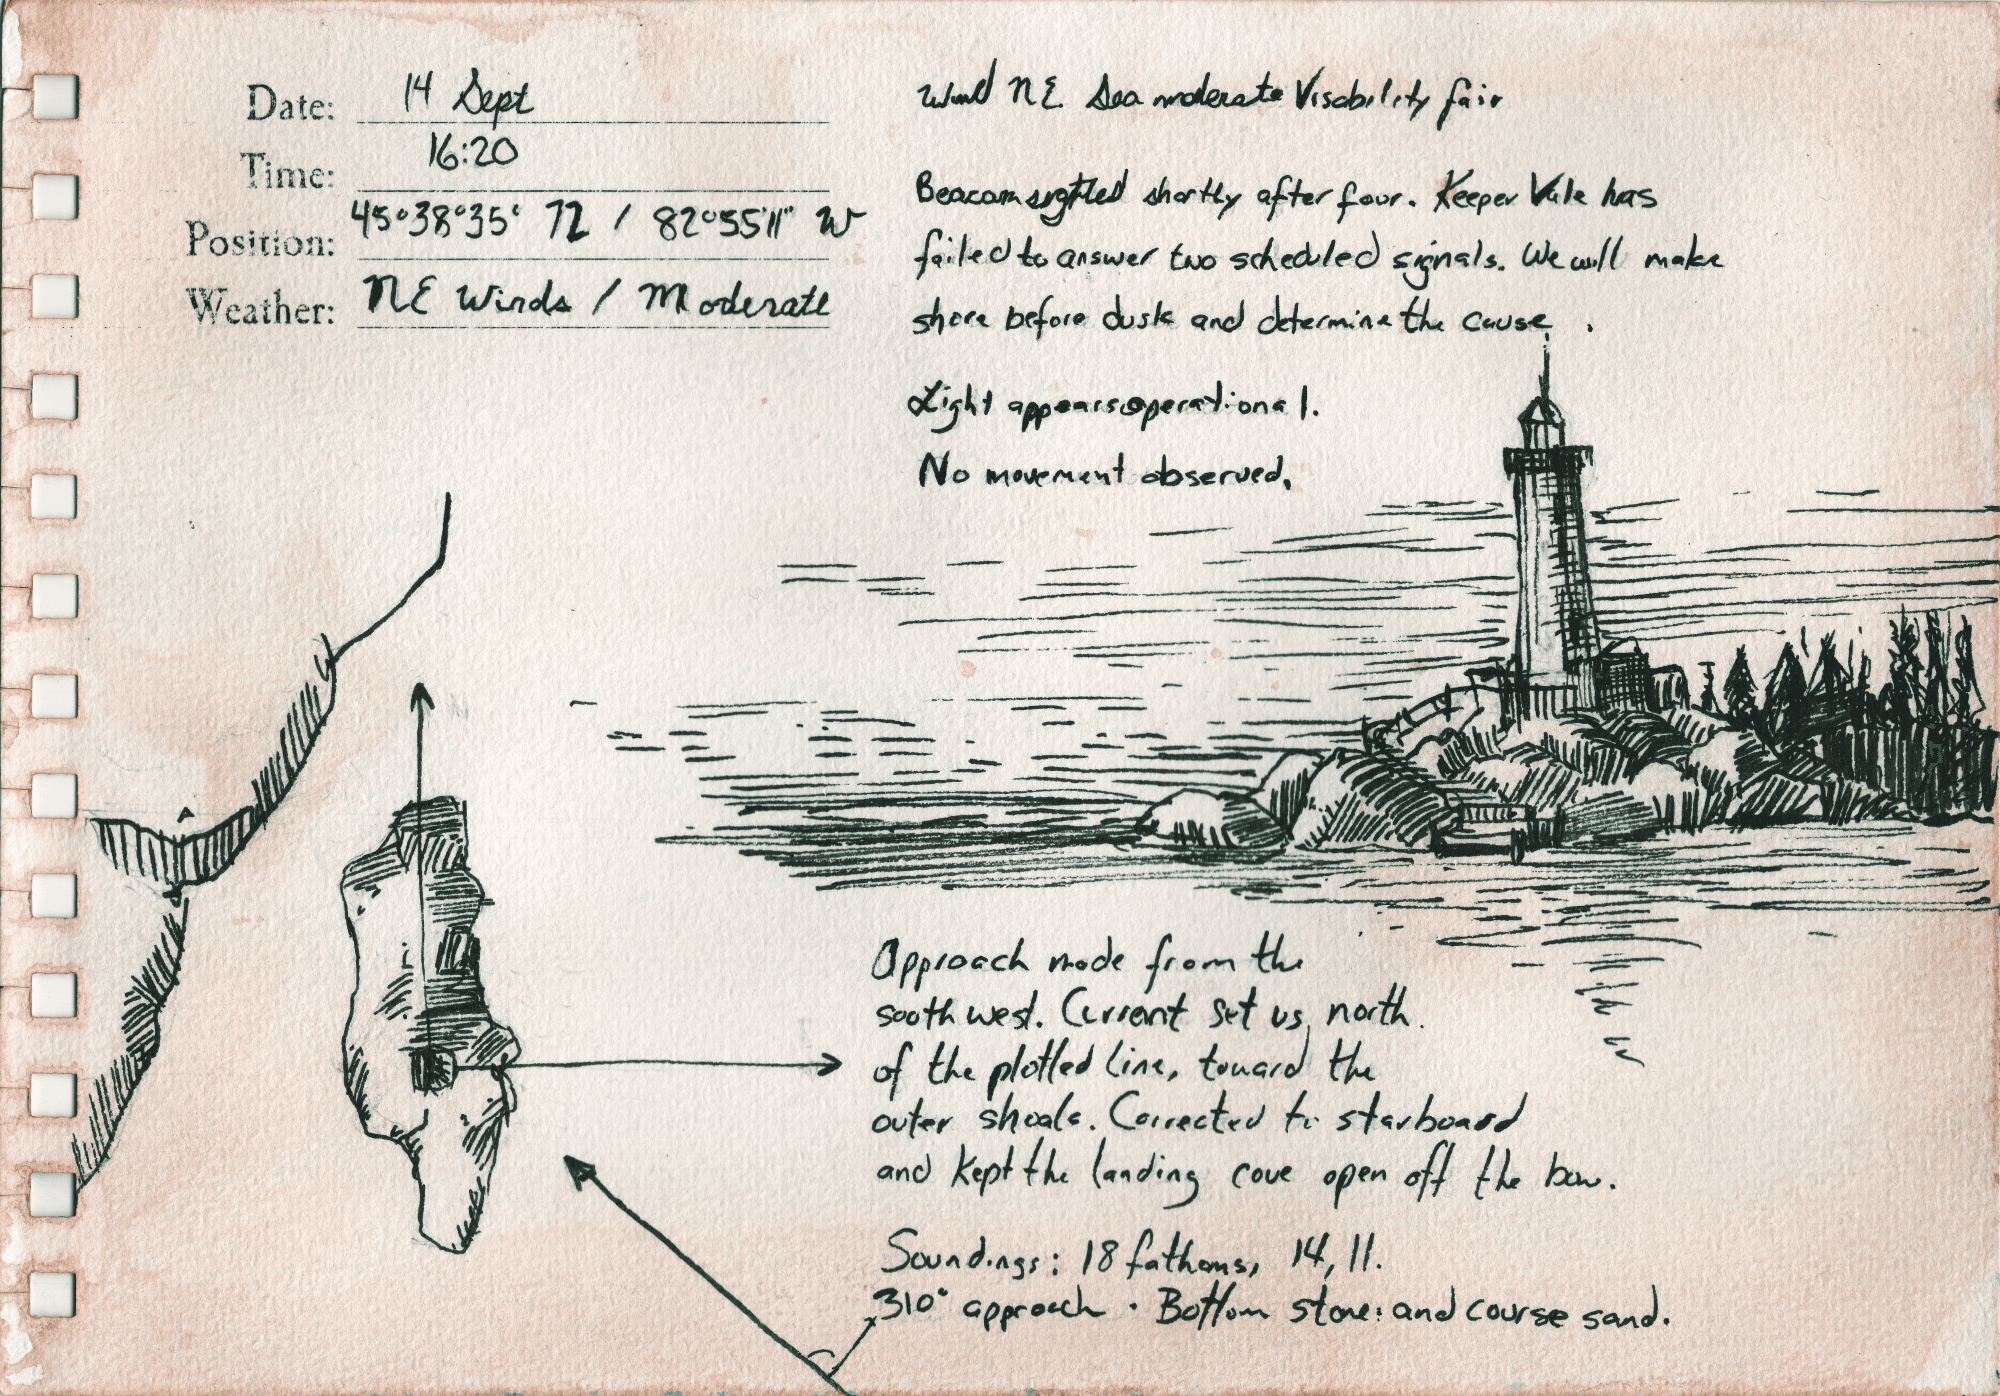 Date: 14 Sept
Time: 16:20
Position: 45°38°35' N / 82°55'11" W
Weather: NE Winds / Moderate
Wind NE Sea moderate Visability fair
Beacon sighted shortly after four. Keeper Vale has
failed to answer two scheduled signals. We will make
shore before dusk and determine the cause.
Light appears operational.
No movement observed.
Approach made from the
south west. Current set us north
of the plotted line, toward the
outer shoals. Corrected to starboard
and kept the landing cove open off the bow.
Soundings: 18 fathoms, 14, 11.
310° approach. Bottom stone and course sand.